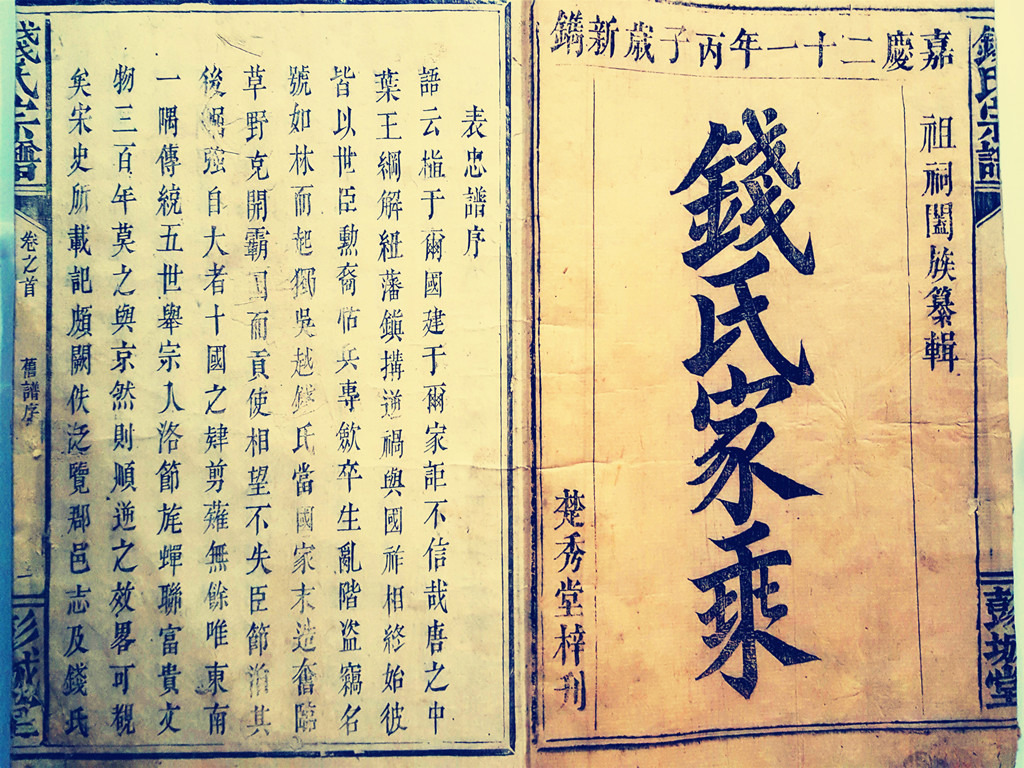 錢氏宗譜
彭城堂
嘉慶二十一年丙子歲新鐫
祖祠闔族纂輯
錢氏家乘
楚秀堂梓刊
表忠譜序
語云植于爾國建于爾家詎不信哉唐之中
葉王綱解紐藩鎮搆逆禍與國祚相終始彼
皆以世臣勳裔怙兵專歛卒生亂階盜竊名
號如林而起獨吳越錢氏當國家末造奮臨
草野克開霸國而貢使相望不失臣節洎其
後倔強自大者十國之肄剪薙無餘唯東南
一隅傳統五世舉宗入洛節旄蟬聯富貴文
物三百年莫之與京然則順逆之效畧可覩
矣宋史所載記頗闕佚泛覽郡邑志及錢氏
錢氏宗譜
卷之首
舊譜序
一
彭城堂